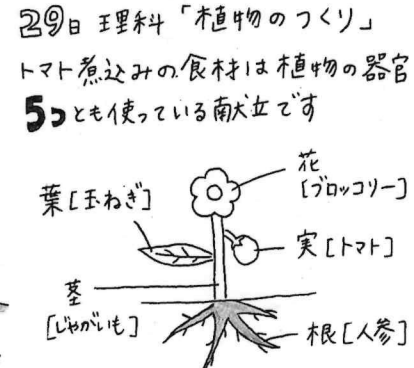 29日 理科「植物のつくり」
トマト煮込みの食材は植物の器官
5つとも使っている献立です
花
[ブロッコリー]
葉[玉ねぎ]
実[トマト]
茎
[じゃがいも]
根[人参]